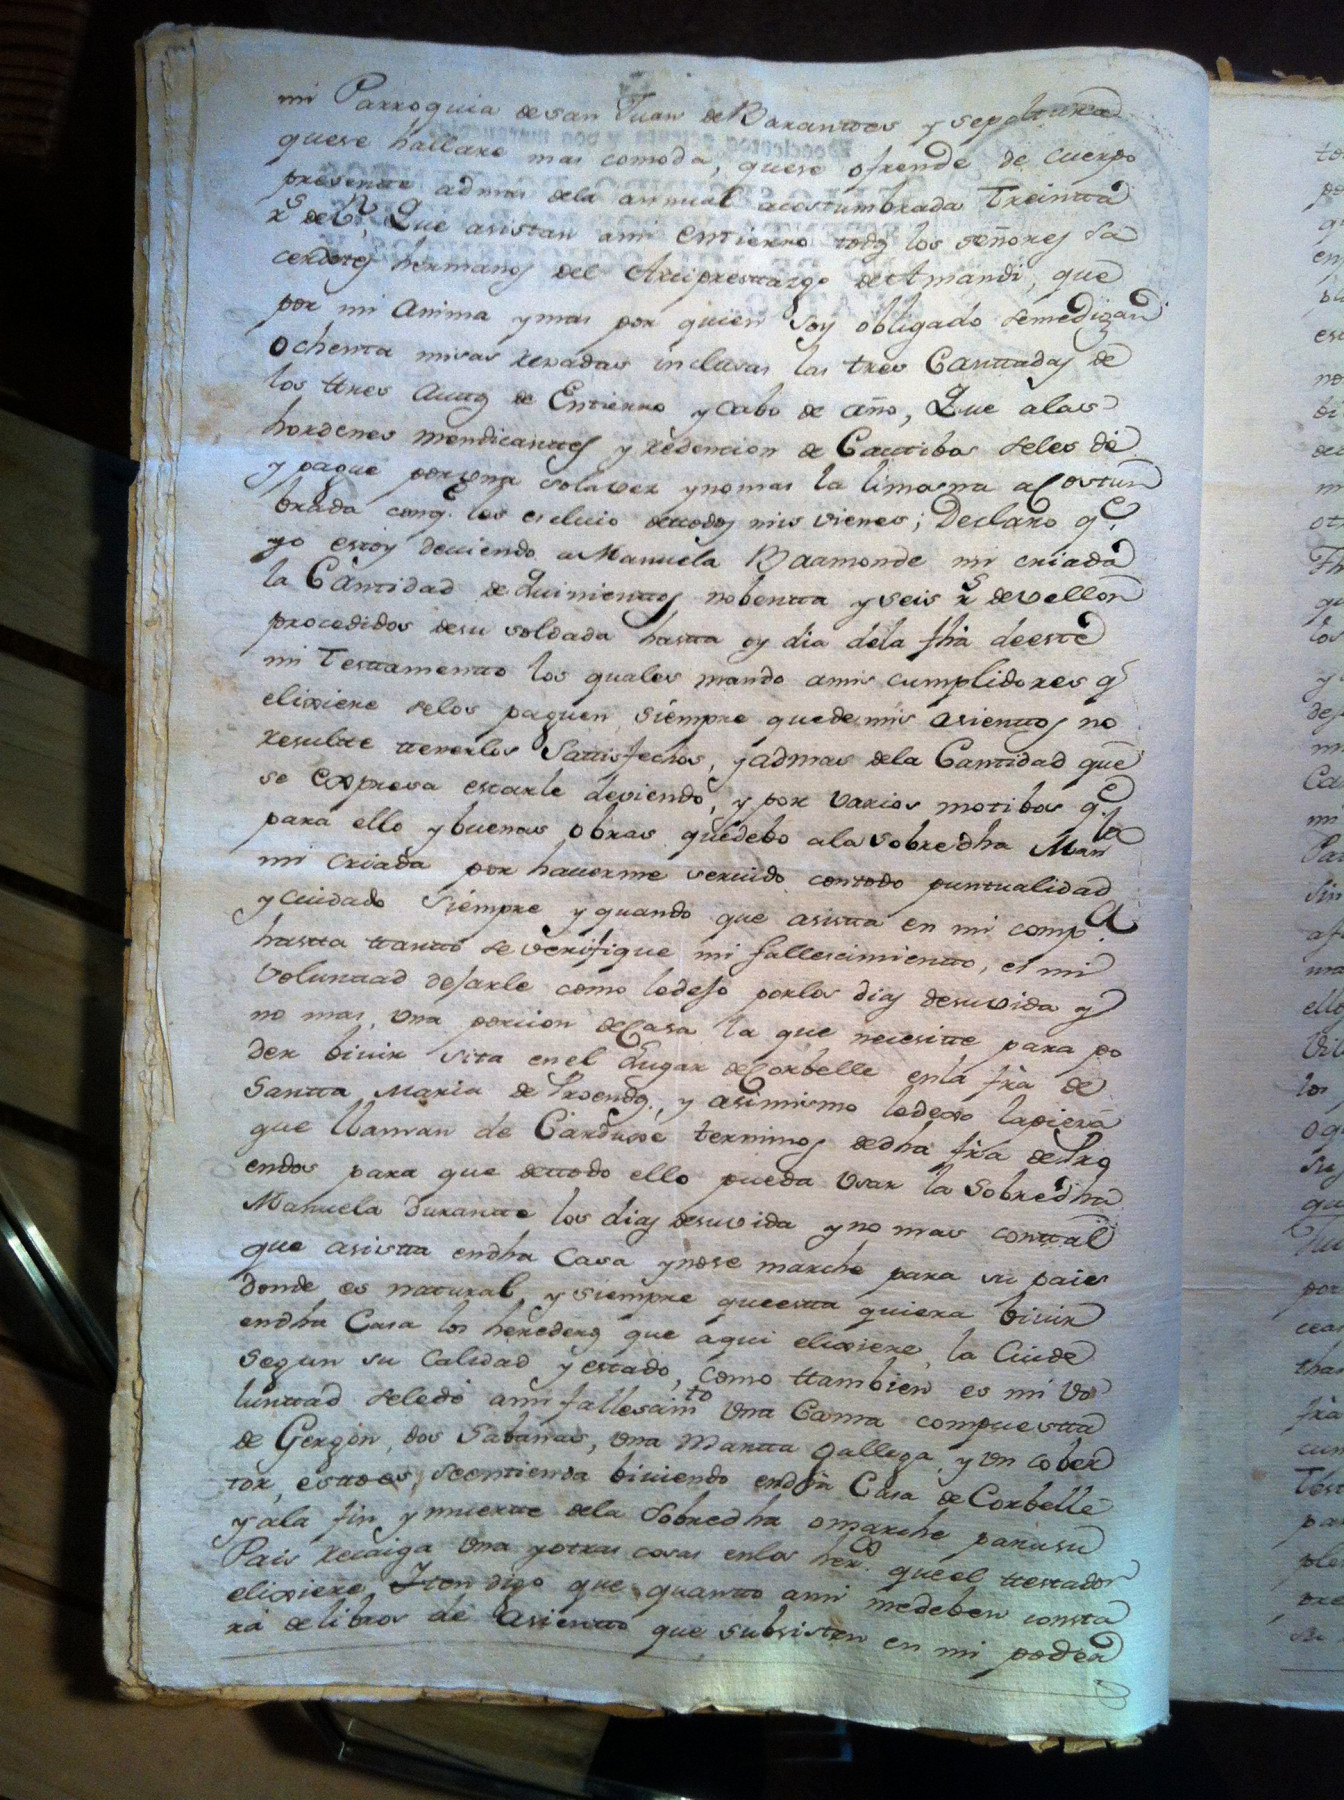 mi Parroquia de san Juan de Barantes y sepoltura
quese hallare mas comoda, quese ofrende de cuerpo
presente admas dela annual acostumbrada Treintta
rs de vn, Que asistan ami entierro todos los señores Sa
cerdotes hermanos del Arciprestazgo de Amandi, que
por mi anima y mas por quien soy obligado semedigan
ochenta misas rezadas inclusas las tres Canttadas de
los ttres auttos de Entierro y cabo de año, Que alas
hordenes mendicanttes y redencion de Cautibos seles dé
y pague por una sola vez y no mas la limosna acostum
brada conq.e los escluio dettodos mis vienes; Declaro q.e
yo estoy deviendo a Manuela Baamonde mi criada
la Cantidad de Quinienttos nobentta y seis rs de vellon
procedidos desu soldada hastta oy dia dela fha deeste
mi Testtamentto los quales mando amis cumplidores q
elixiere selos paguen siempre quede mis asienttos no
resultte ttenerlos Sattisfechos, y admas dela Cantidad que
se expresa estarle deviendo, y por varios motibos q.e
para ello y buenas obras quedebo ala sobredha Man.la
mi criada por haverme servido contodo puntualidad
y cuidado siempre y quando que asistta en mi comp.a
hastta ttantto se verifique mi fallescimientto, es mi
voluntad dejarle como ledejo porlos dias desuvida y
no mas, una porcion de Casa la que necesitte para po
der bivir sita en el Lugar de Corbelle enla fra de
Santta Maria de Proendos, y asimismo ledexo lapieza
que llaman de Carduxe terminos dedha fra de Pro
endos para que dettodo ello pueda usar la Sobredha
Manuela durantte los dias desuvida y no mas conttal
que asistta endha Casa ynose marche para su pais
donde es natural, y siempre queestta quiera bivir
endha Casa los herederos que aqui elixiere, la Cuide
segun su Calidad y estado, como ttambien es mi vo
luntad seledé ami fallesaim.to una Cama compuestta
de Gergon, dos Sabanas, una Mantta gallega, y un cober
tor, estto es, seentienda biviendo endha Casa de Corbelle
y ala fin y muerte dela Sobredha o marche parasu
Pais recaiga una y otras cosas enlos her.os queel ttestador
elixiere, Ytten digo que quantto ami medeben consta
rá de libros de Asientto que subsisten en mi poder